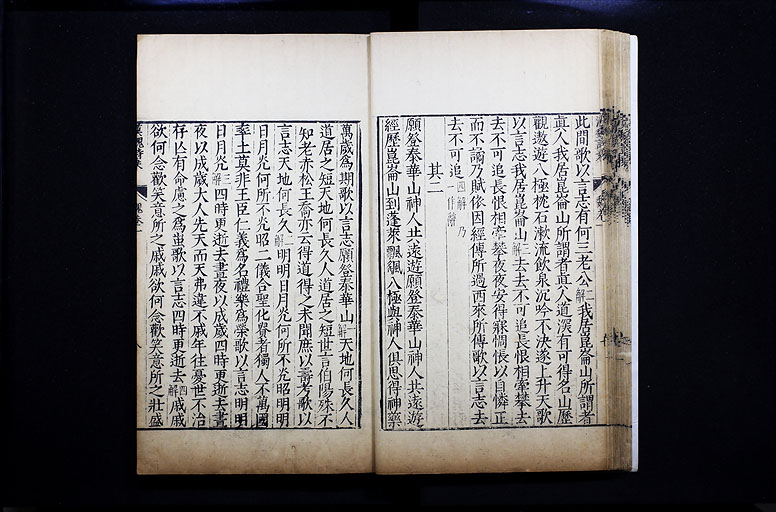 此間歌以言志有何三老公二解我居崑崙山所謂者
真人我居崑崙山所謂者真人道深有可得名山歷
觀遨遊八極枕石漱流飲泉沉吟不決遂上升天歌
以言志我居崑崙山三解去去不可追長恨相牽攀去
去不可追長恨相牽攀夜夜安得寐惆悵以自憐正
而不譎乃賦依因經傳所過西來所傳歌以言志去
去不可追四解
其二
願登泰華山神人共遠遊願登泰華山神人共遠遊
經歷崑崙山到蓬萊飄颻八極與神人俱思得神藥
萬歲為期歌以言志願登泰華山一解天地何長久人
道居之短天地何長久人道居之短世言伯陽殊不
知老赤松王喬亦云得道得之未聞庶以壽考歌以
言志天地何長久二解明明日月光何所不光昭明明
日月光何所不光昭二儀合聖化貴者獨人不萬國
率土莫非王臣仁義為名禮樂為榮歌以言志明明
日月光三解四時更逝去晝夜以成歲四時更逝去晝
夜以成歲大人先天而天弗違不戚年往憂世不治
存亡有命慮之為蚩歌以言志四時更逝去四解戚戚
欲何念歡笑意所之戚戚欲何念歡笑意所之壯盛